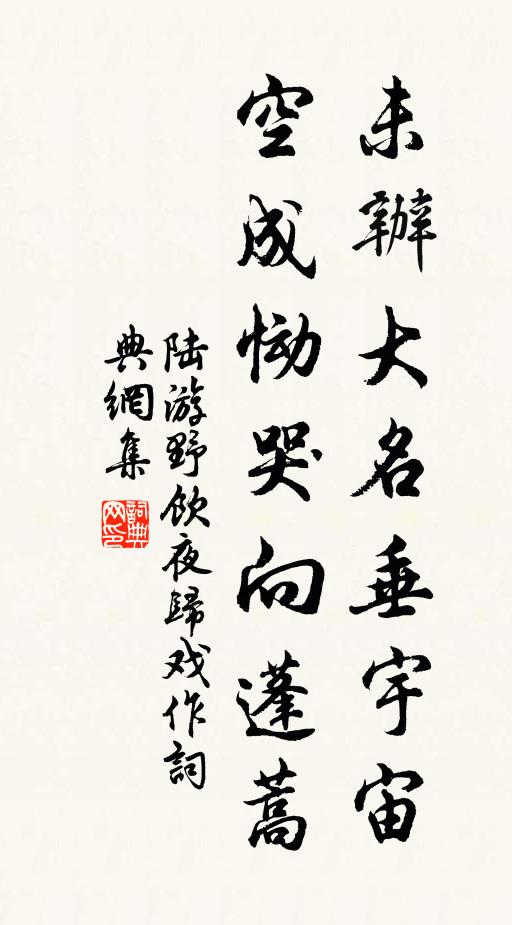 未辦大名垂宇宙
空成慟哭向蓬蒿
陸游野飲夜歸戏作詞
典網集
詞典
网印